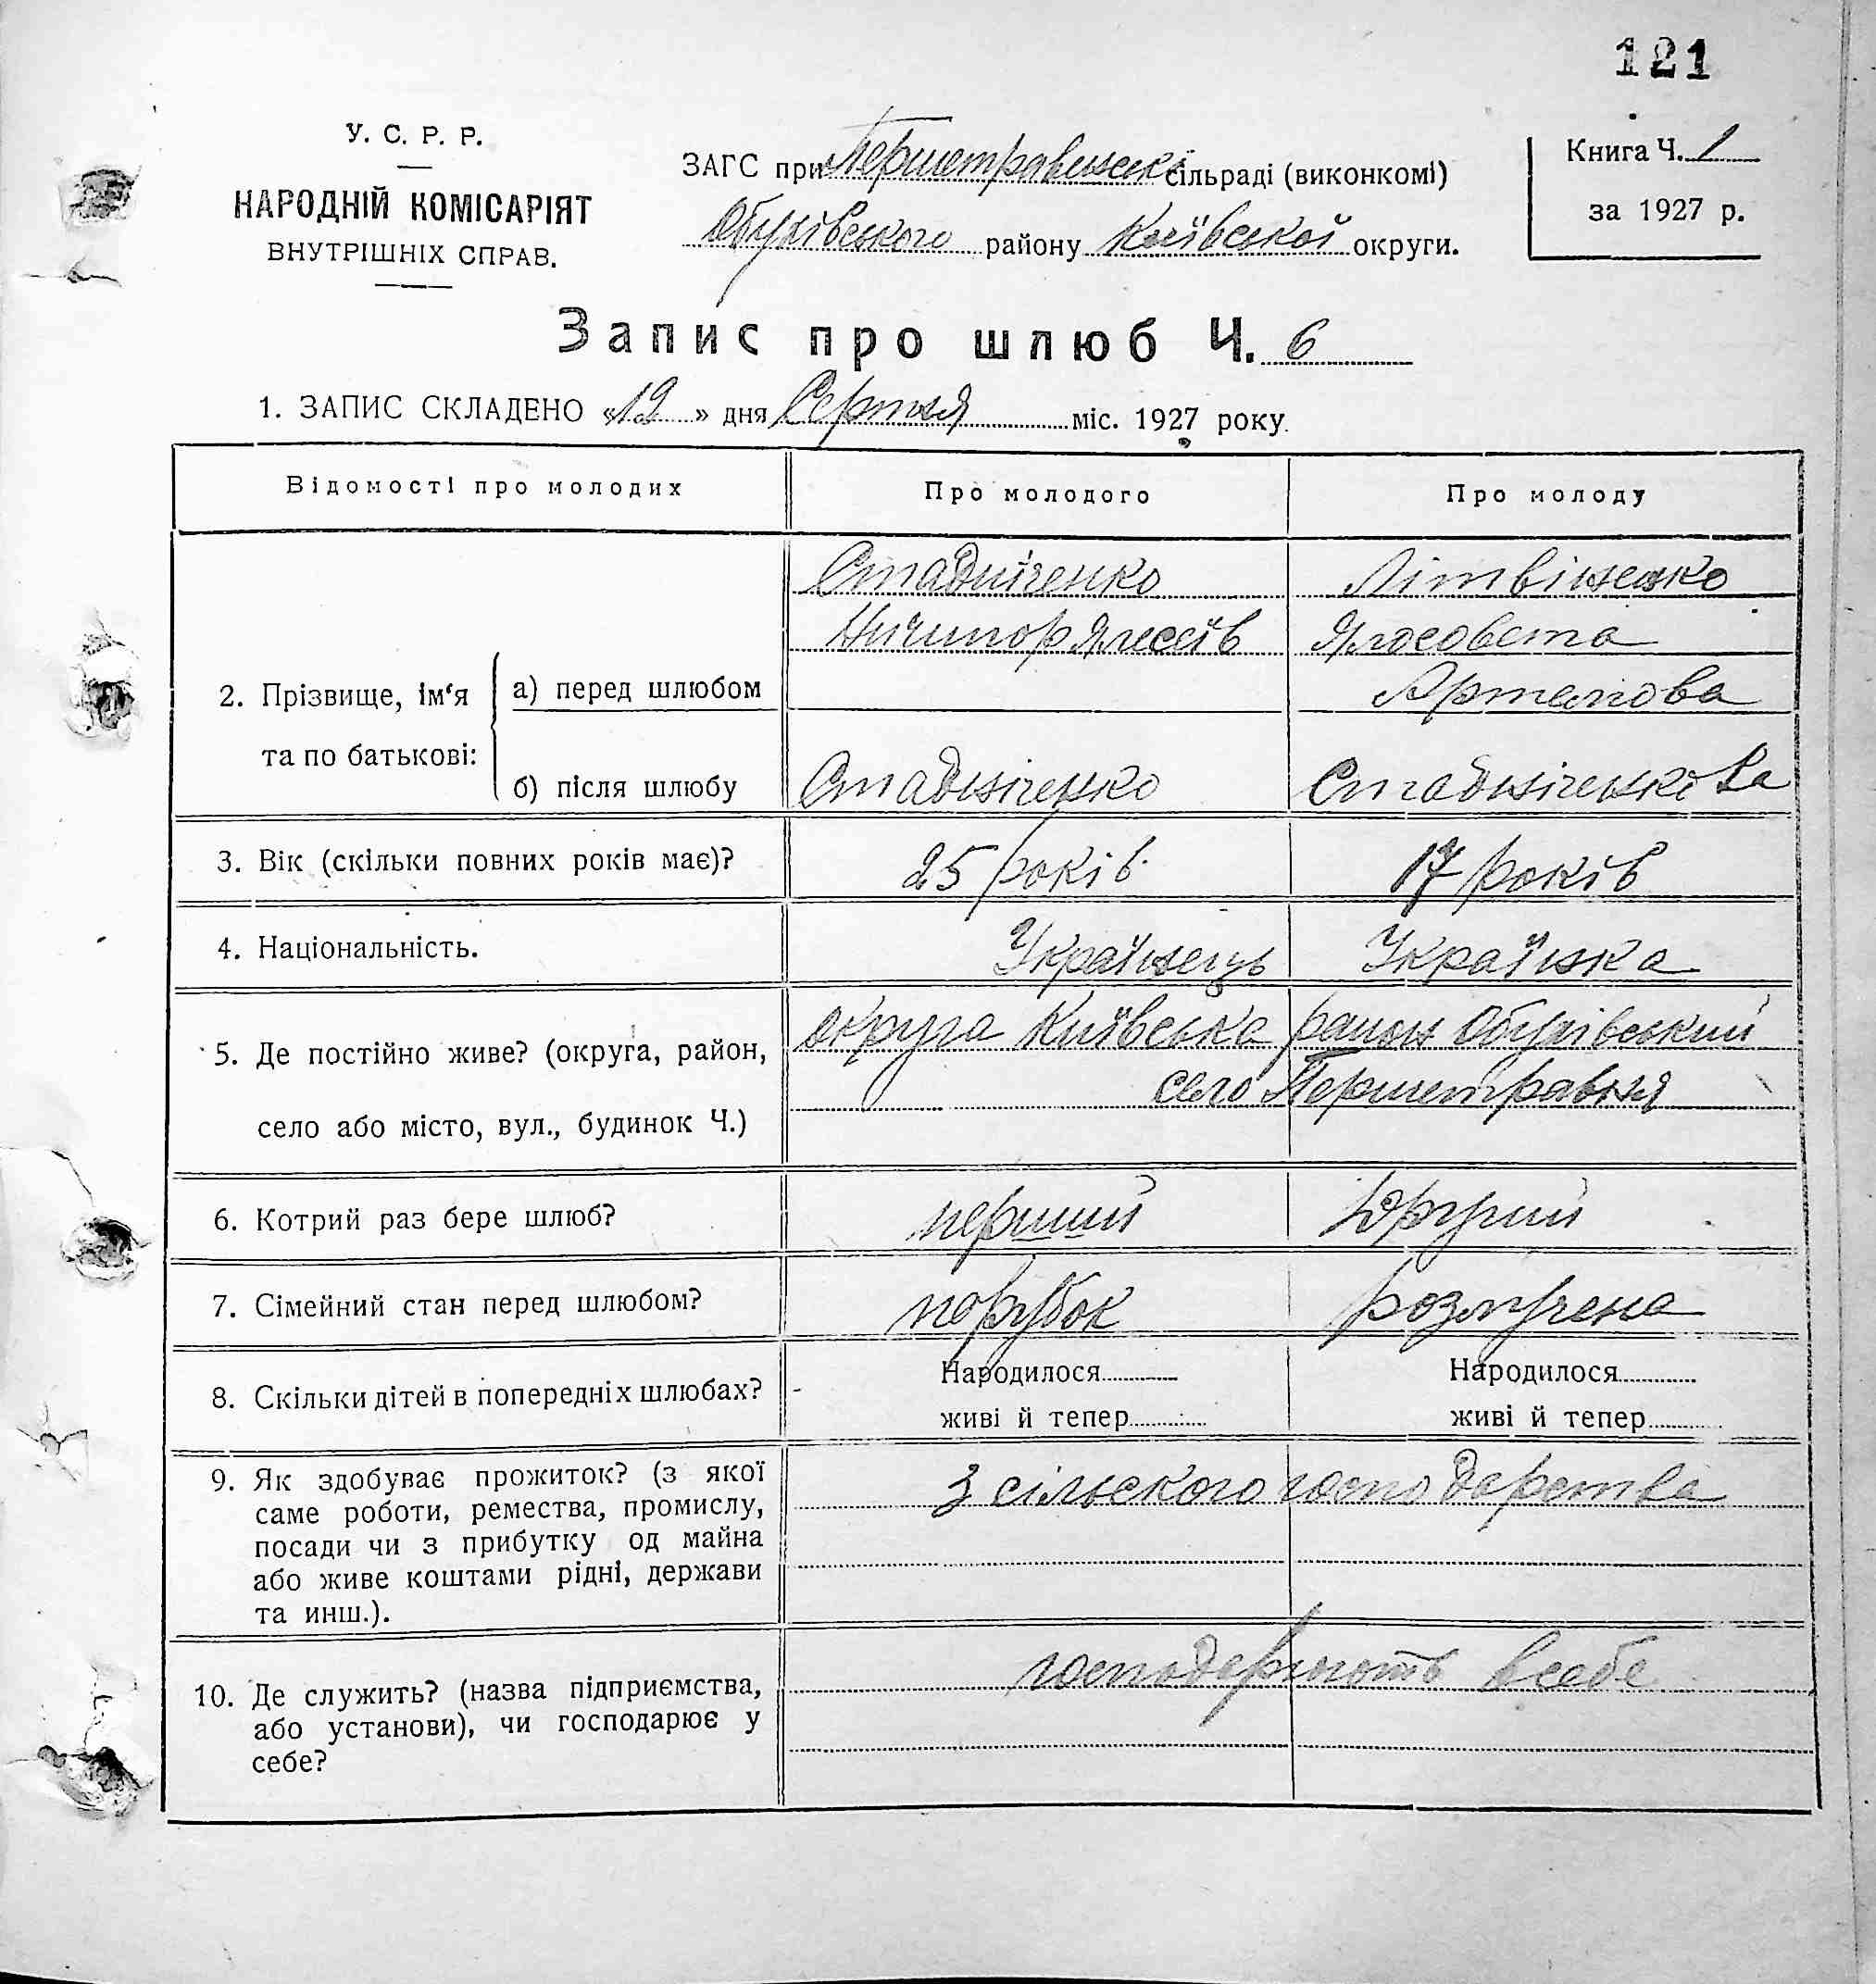 121
У. С. Р. Р.
НАРОДНІЙ КОМІСАРІЯТ
ВНУТРІШНІХ СПРАВ.
ЗАГС при Першетравенській сільраді (виконкомі)
Обухівського району Київської округи.
Книга Ч. 1
за 1927 р.
Запис про шлюб Ч. 6
1. ЗАПИС СКЛАДЕНО «12» дня Серпня міс. 1927 року.
Відомості про молодих Про молодого Про молоду
Стадніченко Літвіненко
Ничипор Ялисовета
2. Прізвище, ім‘я а) перед шлюбом Артемова
та по батькові:
б) після шлюбу Стадніченко Стадніченкова
3. Вік (скільки повних років має)? 25 років 17 років
4. Національність. Українець Українка
5. Де постійно живе? (округа, район, округа Київська район Обухівський
село Першетравня
село або місто, вул., будинок Ч.)
6. Котрий раз бере шлюб? перший Другий
7. Сімейний стан перед шлюбом? порубок розлучена
8. Скільки дітей в попередніх шлюбах? Народилося Народилося
живі й тепер живі й тепер
9. Як здобуває прожиток? (з якої з сільского господарства
саме роботи, ремества, промислу,
посади чи з прибутку од майна
або живе коштами рідні, держави
та инш.).
10. Де служить? (назва підприємства, господарюють в себе
або установи), чи господарює у
себе?